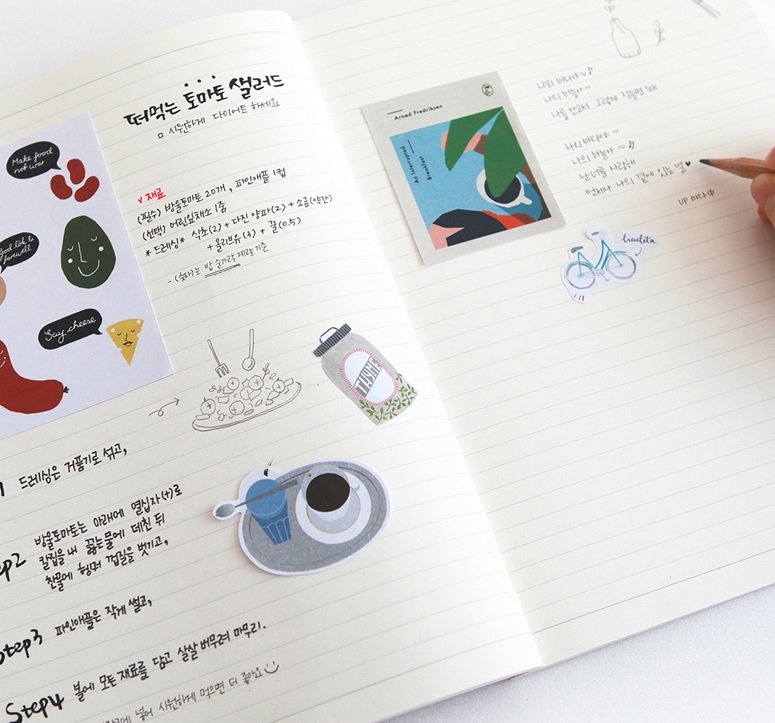 Make food
not war
Say cheese
떠먹는 토마토 샐러드
시원하게 다이어트 하세요
재료
(필수) 방울토마토 20개, 파인애플 1컵
(선택) 어린잎채소 1줌
* 드레싱 * 식초(2) + 다진 양파(2) + 소금(약간)
+ 올리브유(3) + 꿀(0.5)
THYME
드레싱은 거품기로 섞고,
방울토마토는 아래에 열십자(+)로
칼집을 내 끓는물에 데친 뒤
찬물에 헹궈 껍질을 벗기고,
Step3 파인애플은 작게 썰고,
Step4 볼에 모든 재료를 담고 살살 버무려 마무리.
넣어 시원하게 먹으면 더 좋아요
Arned Fredriksen
An Interrupted
Breakfast
나의 바다야 ~
나의 하늘아 ~
UP 바다